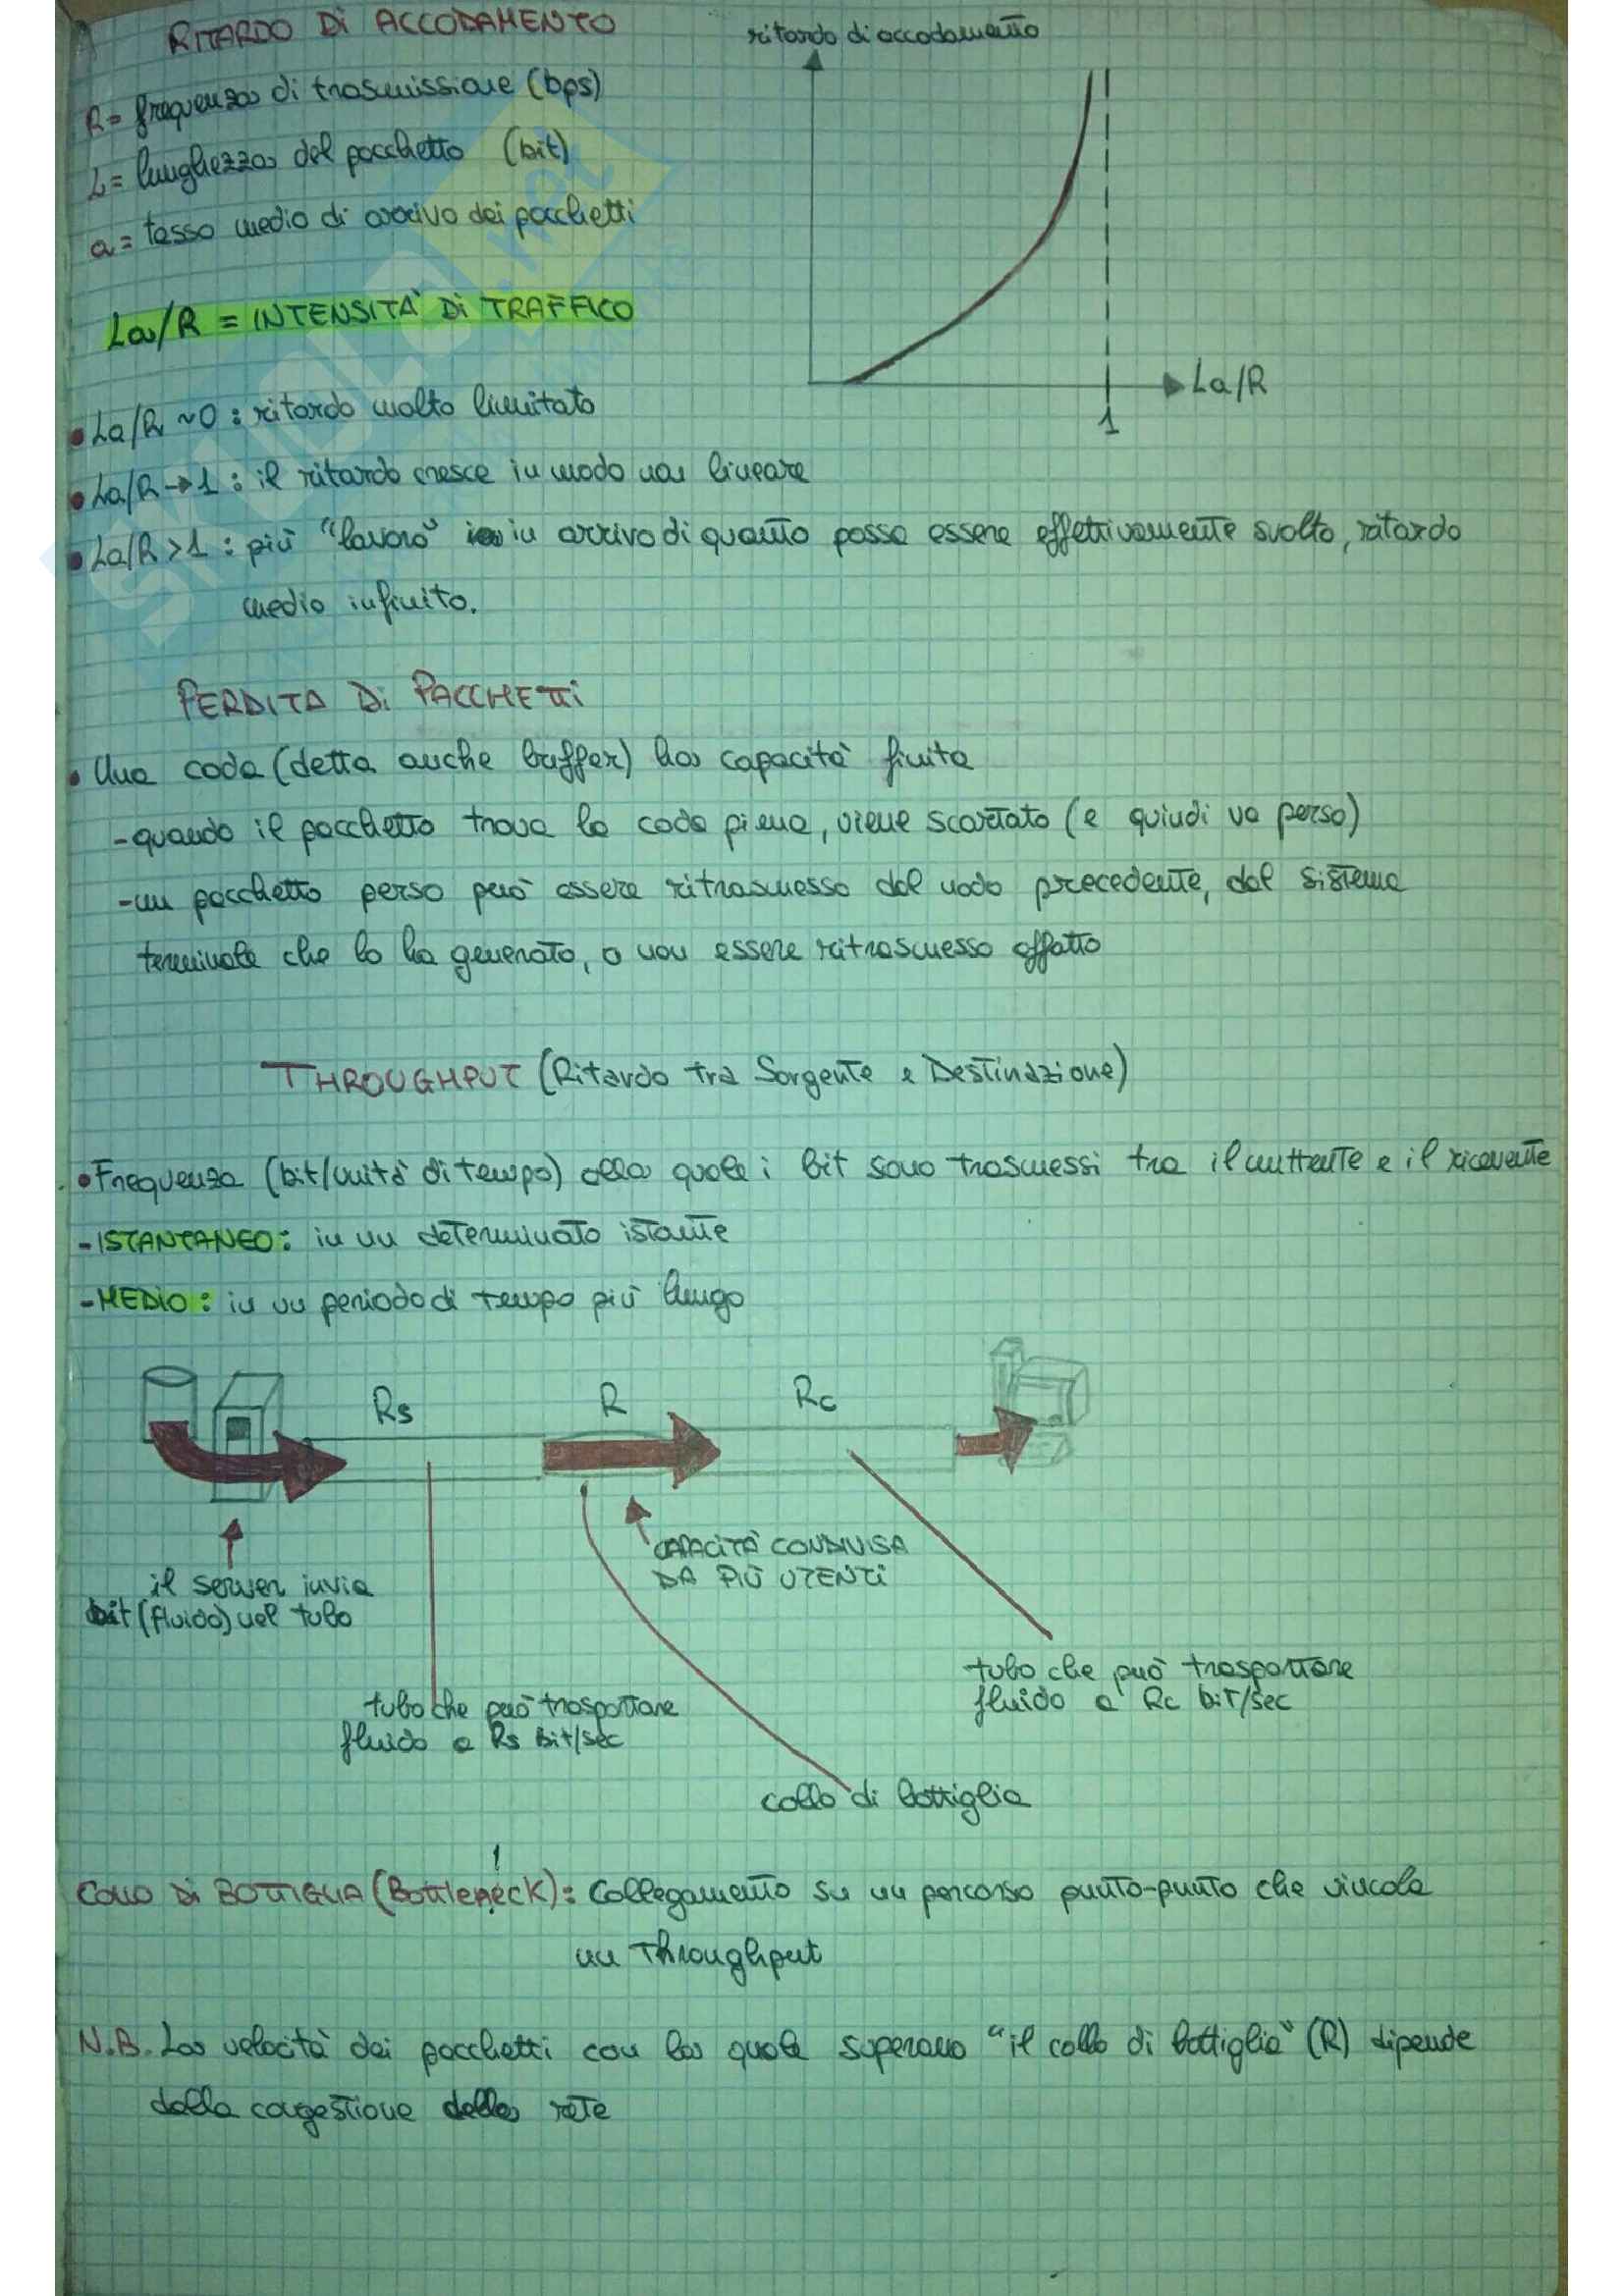 RITARDO DI ACCODAMENTO
R= frequenza di trasmissione (bps)
L= lunghezza del pacchetto (bit)
a= tasso medio di arrivo dei pacchetti
La/R = INTENSITÀ DI TRAFFICO
ritardo di accodamento
La/R
1
• La/R ~0 : ritardo molto limitato
• La/R → 1 : il ritardo cresce in modo non lineare
• La/R > 1 : più "lavoro" in arrivo di quanto possa essere effettivamente svolto, ritardo
medio infinito.
PERDITA DI PACCHETTI
• Una coda (detta anche buffer) ha capacità finita
-quando il pacchetto trova la coda piena, viene scartato (e quindi va perso)
-un pacchetto perso può essere ritrasmesso dal nodo precedente, dal sistema
terminale che lo ha generato, o non essere ritrasmesso affatto
THROUGHPUT (Ritardo tra Sorgente e Destinazione)
• Frequenza (bit/unità di tempo) alla quale i bit sono trasmessi tra il mittente e il ricevente
-ISTANTANEO: in un determinato istante
-MEDIO: in un periodo di tempo più lungo
Rs
R
Rc
CAPACITÀ CONDIVISA
DA PIÙ UTENTI
il server invia
bit (fluido) nel tubo
tubo che può trasportare
fluido a Rc bit/sec
tubo che può trasportare
fluido a Rs bit/sec
collo di bottiglia
COLLO DI BOTTIGLIA (Bottleneck): Collegamento su un percorso punto-punto che vincola
un Throughput
N.B. La velocità dei pacchetti con la quale superano "il collo di bottiglia" (R) dipende
dalla congestione della rete